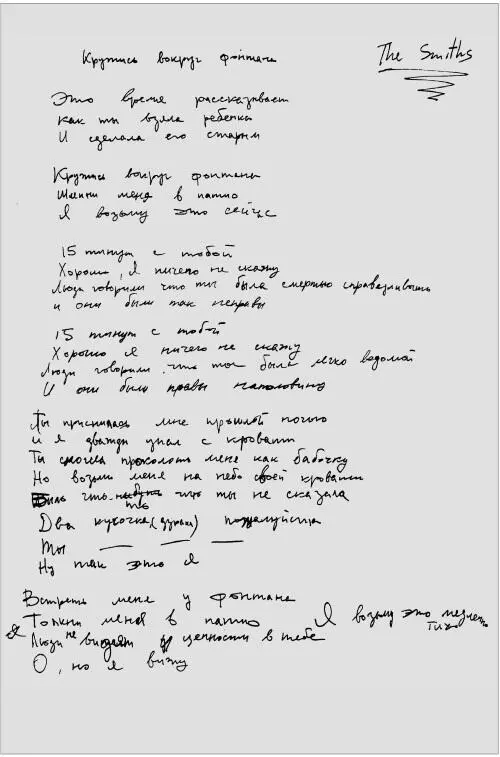 Кружись вокруг фонтана
The Smiths
Это время рассказывает
как ты взяла ребенка
И сделала его старым
Кружись вокруг фонтана
Шлепни меня в патио
Я возьму это сейчас
15 минут с тобой
Хорошо, я ничего не скажу
Люди говорили что ты была смертью
и они были так неправы
15 минут с тобой
Хорошо я ничего не скажу
Люди говорили что ты была легко ведомой
И они были правы наполовину
Ты приснилась мне прошлой ночью
и я дважды упал с кровати
Ты смогла проколоть меня как бабочку
Но возьми меня на небо своей кровати
что что ты не сказала
Два кусочка пожалуйста
Ты
Ну так это я
Встреть меня у фонтана
Толкни меня в патио Я возьму это
Люди не видят ценности в тебе
О, но я вижу